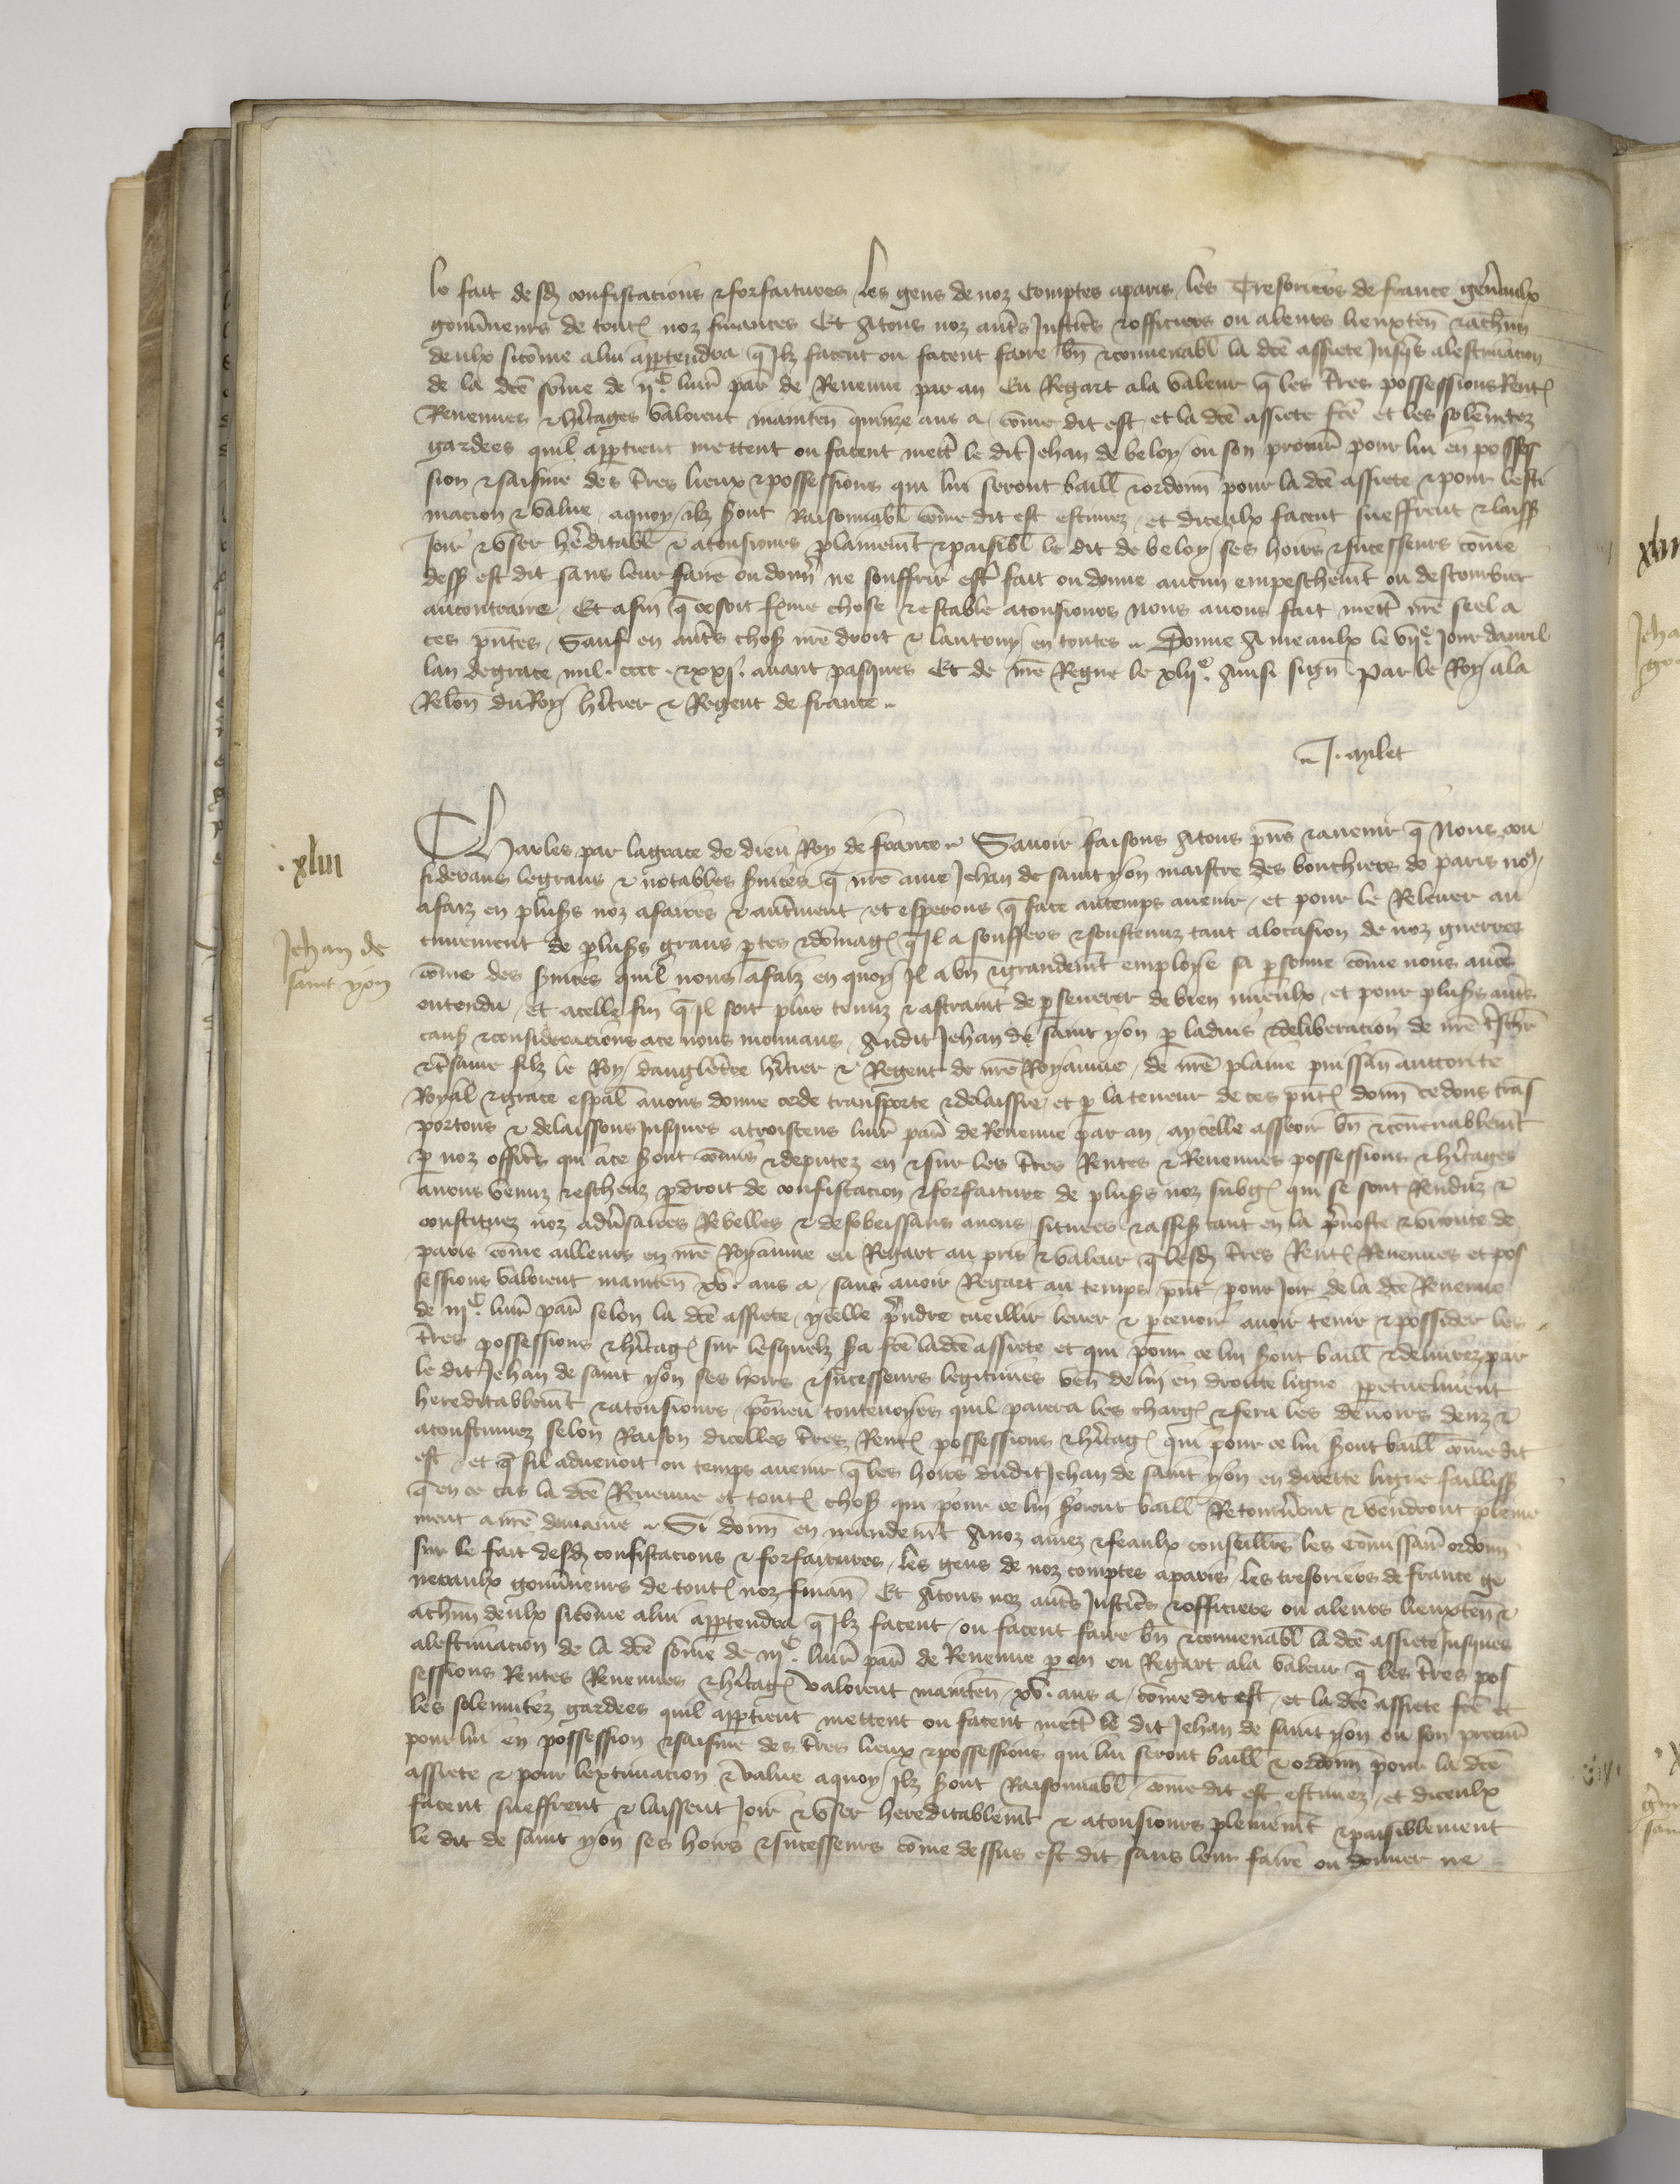 le fait desd confiscacions et forfaitures les gens de noz Comptes a paris les Tresoriers de france genraulx
gouvneurs de tout noz finances Et A tous noz auts Justics et officiers ou a leurs lieuxten et a chun
deulx sicome a lui appartendra q Ilz facent ou facent faire bn et convenabl la dce assiete Jusqs a lestimacion
de la dce some de ijc livr par de Revenue par an Eu Regart a la valeur q les tres possessions Rent
Revenues et hitages valoient mainten quinze ans a come dit est et la dce assiete fce et les solennitez
gardees quil appartient mettent ou facent mett le dit Jehan de beloy ou son procur pour lui en posses
sion et saisine des tres lieux et possessions qui lui seront baill et ordonn pour la dce assiete et pour lesti
macion et value a quoy ilz sont Raisonnabl come dit est estimez et diceulx facent sueffrent et laiss
Joir et user heditabl et a tousiours plainemt et paisibl le dit de beloy ses hoirs et sucesseurs come
dess est dit sans leur faire ou donn ne souffrir est fait ou donne aucun empeschemt ou destourbier
au contraire Et afin q ce soit fme chose et estable a tousiours nous avons fait mett nre seel a
ces pntes Sauf en auts chos nre droit et lautruy en toutes Donne A meaulx le vije Jour davril
lan de grace mil cccc et xxj avant pasques Et de nre Regne le xlije Ainsi sign Par le Roy a la
Relon du Roy hitier et Regent de france
J. milet
xliii
Jehan de
saint yon
Charles par la grace de dieu Roy de france Savoir faisons A tous pns et avenir q Nous con
siderans le grans et notables svices q nre ame Jehan de saint yon maistre des bouchiers de paris no
a faiz en plusrs noz afaires et autment et esperons q face au temps avenir et pour le Relever au
cunement de plusrs grans ptes et domag q Il a souffers et soustenuz tant a locasion de noz guerres
come des svices quil nous a faiz en quoy Il a bn et grandemt employe sa psonne come nous avos
entendu Et a celle fin q Il soit plus tenuz et astraint de pseverer de bien mieulx et pour plusrs auts
caus et consideracions a ce nous mouvans Audit Jehan de saint yon p ladvis et deliberacion de nre tschr
et tsame filz le Roy dangletre hitier et Regent de nre Royaume de nre plaine puissan auctorite
Royal et grace espal avons donne cede transporte et delaissie et p la teneur de ces pnt donn cedons tras
portons et delaissons Jusques a trois cens livr par de Revenue par an a ycelle asseoir bn et convenablemt
p noz offics qui a ce sont comis et deputez en et sur les tres Rentes et Revenues possessions et hitages
a nous venuz et escheuz p droit de confiscacion et forfaiture de plusrs noz subg qui se sont Renduz et
constituez noz advsaires Rebelles et desobeissans a nous situees et assis tant en la pvoste et viconte de
paris come ailleurs en nre Royaume eu Regart au pris et valeur q lesd tres Rent Revenues et pos
sessions valoient mainten xv ans a sans avoir Regart au temps pnt pour Joir de la dce Revenue
de iijc livr par selon la dce assiete ycelle pndre cueillir lever et pcevoir avoir tenir et possider les
tres possessions et hitag sur lesquelz sa fce la dce assiete et qui pour ce lui sont baill et delivrez par
le dit Jehan de saint yon ses hoirs et sucesseurs legitimes ven de lui en droite ligne ppetuelment
hereditablemt et a tousiours pourveu toutevoyes quil paiera les charg et fera les devoirs deuz et
acoustumez selon Raison dicelles tres Rent possessions et hitag qui pour ce lui sont baill come dit
est et q sil advenoit ou temps avenir q les hoirs dudit Jehan de saint yon en directe ligne failliss
q en ce cas la dce Revenue et tout chos qui pour ce lui soient baill Retourront et vendront pleine
ment a nre demaine Si donn en mandemt A noz amez et feaulx conseillrs les Comissair ordonn
sur le fait desd confiscacions et forfaitures les gens de noz comptes a paris les tresoriers de france ge
neraulx gouvneurs de tout noz finan Et A tous noz auts Justics et officiers ou a leurs lieuxten et
a chun deulx sicome a lui appartendra q Ilz facent ou facent faire bn et convenabl la dce assiete Jusques
a lestimacion de la dce some de iijc livr par de Revenue p an eu Regart a la valeur q les tres pos
sessions Rentes Revenues et hitag valoient mainten xv ans a come dit est et la dce assiete fce et
les solennitez gardees quil appartient mettent ou facent mett le dit Jehan de saint yon ou son procur
pour lui en possession et saisine des tres lieux et possessions qui lui seront baill et ordonn pour la dce
assiete et pour lextimacion et value a quoy Ilz sont Raisonnabl come dit est estimez et diceulx
facent sueffrent et laissent Joir et user hereditablemt et a tousiours plenemt et paisiblement
le dit de saint yon ses hoirs et sucesseurs come dessus est dit sans leur faire ou donner ne